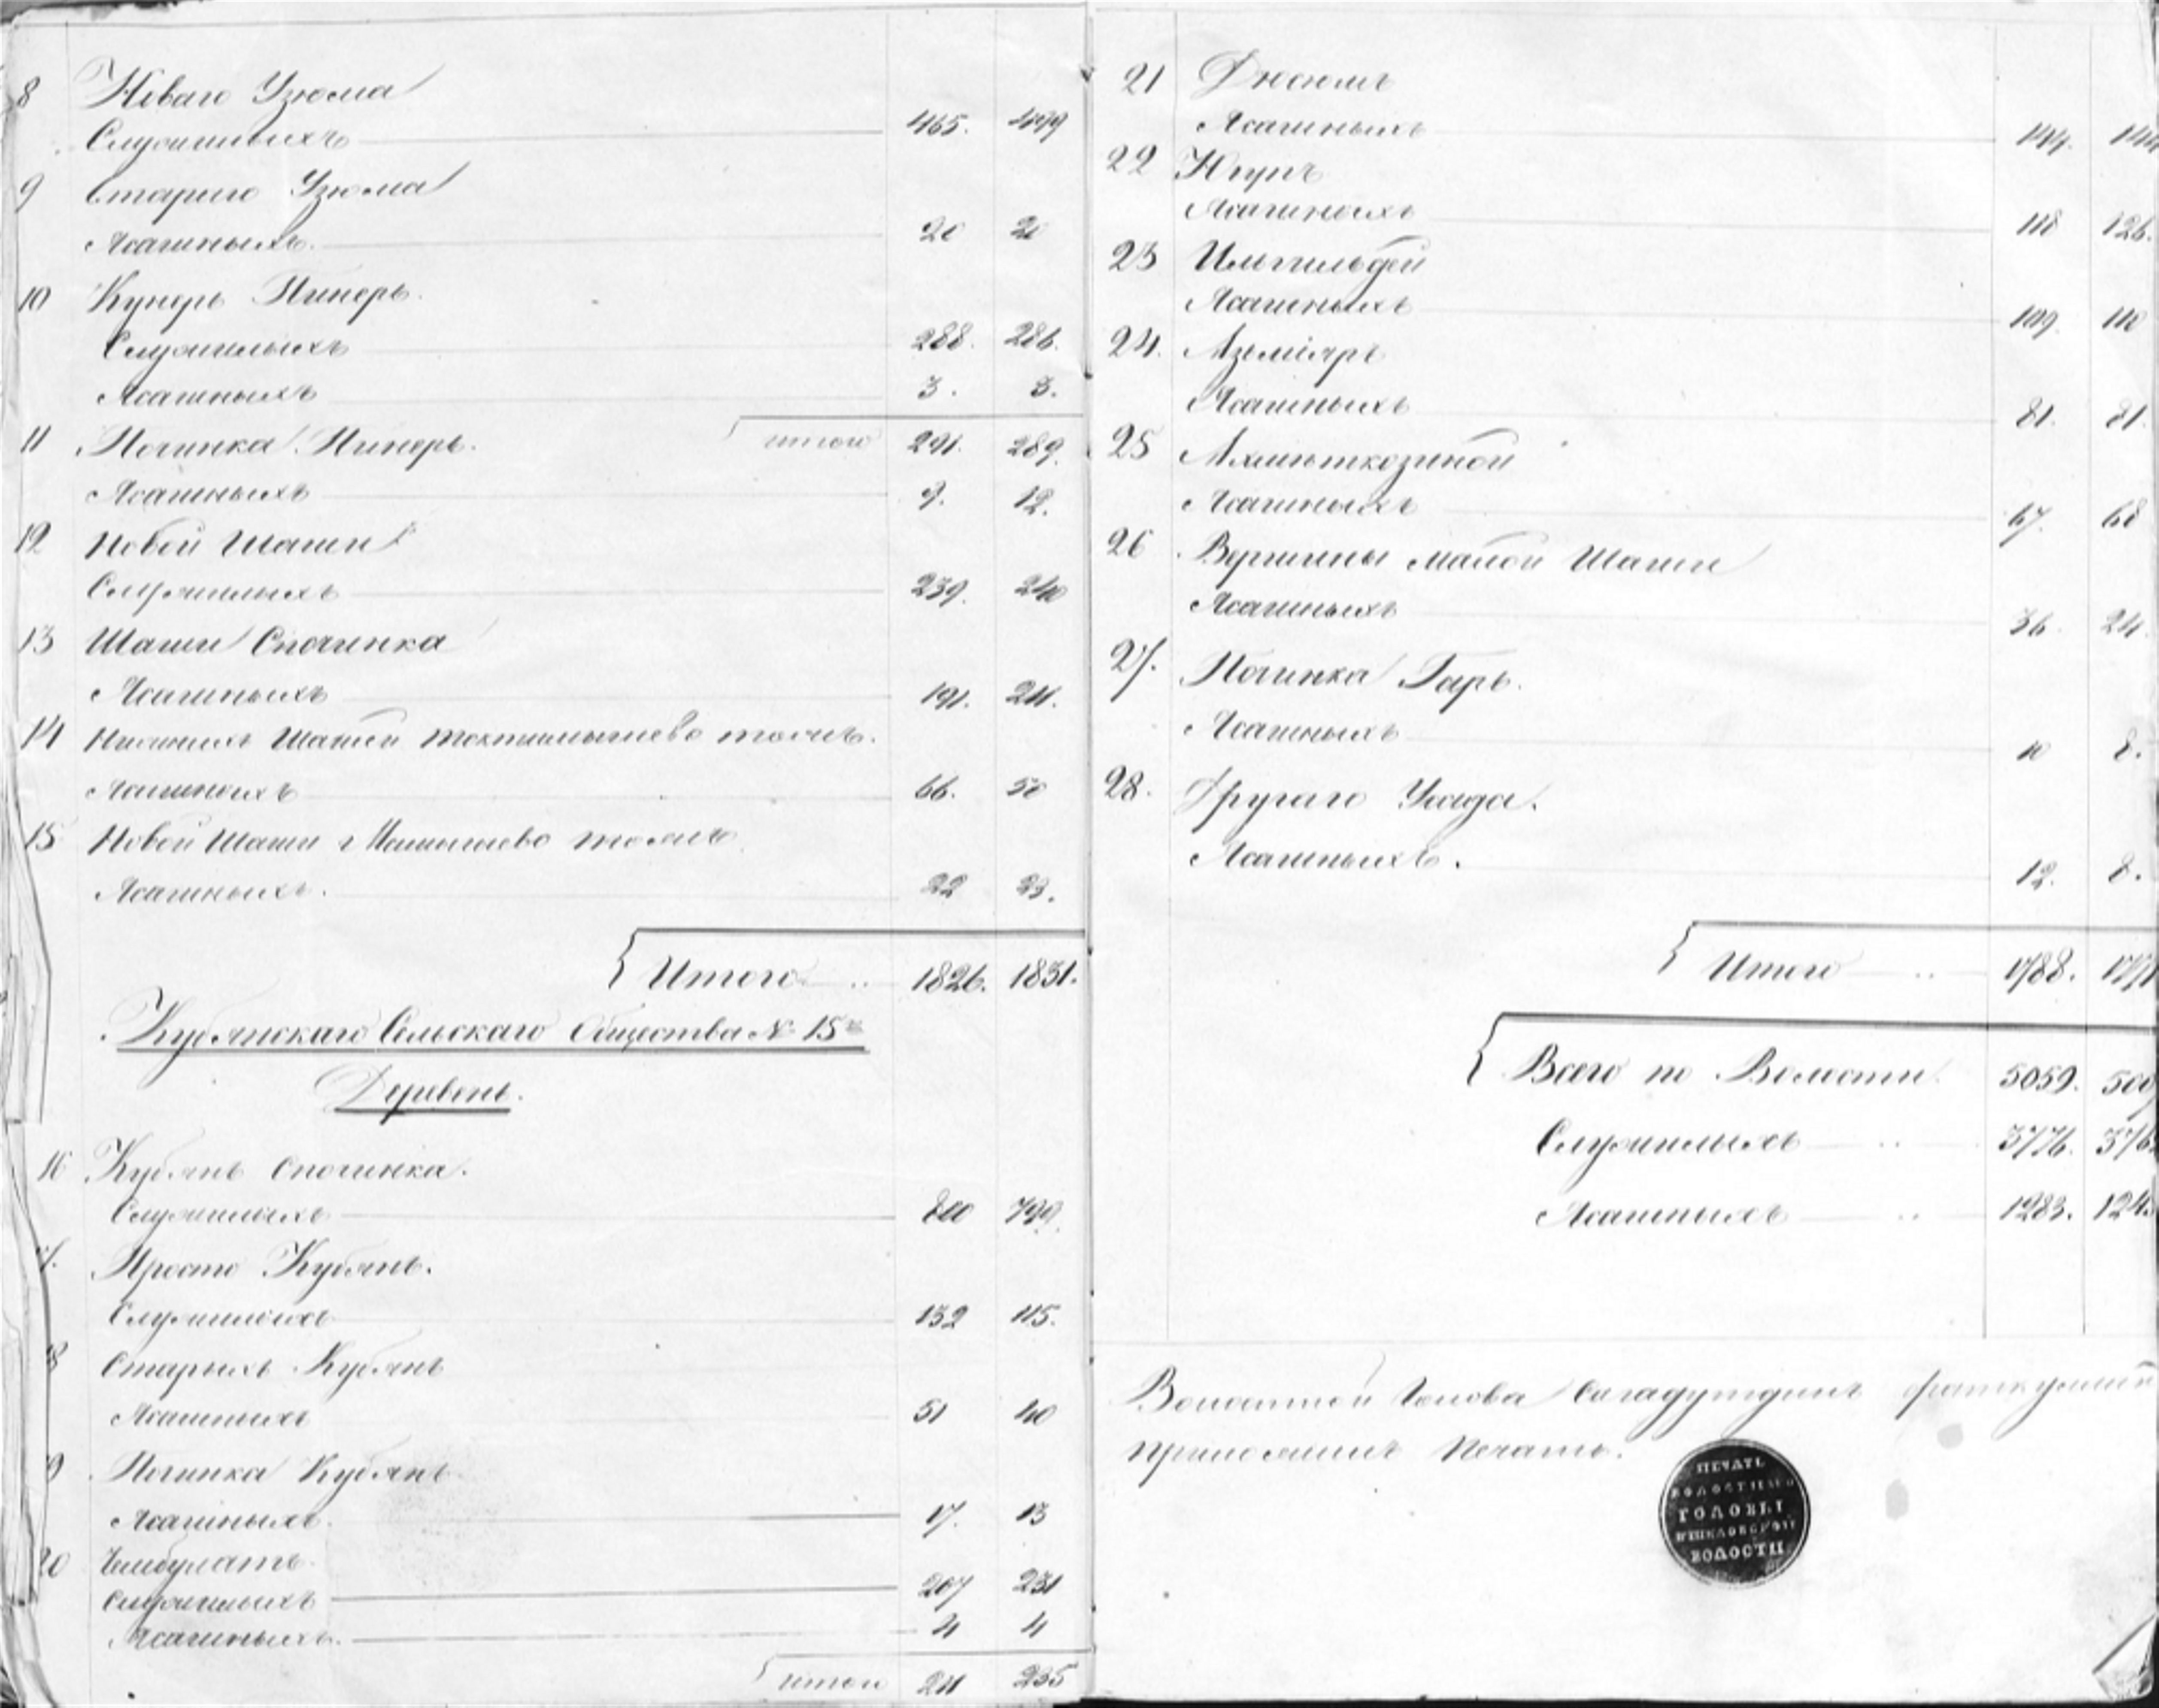 8 Новаго Узюма
Служилыхъ 465. 499
9 Стараго Узюма
Ясашныхъ. 20 20
10 Кунеръ Пинеръ.
Служилыхъ 288. 286.
Ясашныхъ 3. 3.
итого 291. 289.
11 Починка Пинеръ.
Ясашныхъ 9. 12.
12 Новой Шаши
Служилыхъ 239. 240
13 Шаши Спочинка
Ясашныхъ 191. 211.
14 Нижнихъ Шашей тожъ.
Ясашныхъ 66. 50
15 Новой Шаши тожъ
Ясашныхъ. 22 23.
Итого .. 1826. 1831.
Кубянскаго Сельскаго Общества № 15
Деревень.
16 Кубянь Спочинка.
Служилыхъ 799.
Просто Кубянь.
Служилыхъ 132 115.
Старыхъ Кубянь
Ясашныхъ 51 40
Починка Кубянь
Ясашныхъ. 17. 13
20
Служилыхъ 207 231
Ясашныхъ. 4 4
итого 211 235
21 Дюсюмъ
Ясашныхъ 144.
22 Юнуръ
Ясашныхъ 118 126.
23
Ясашныхъ 109. 110
24.
Ясашныхъ 81. 81.
25
Ясашныхъ 67. 68
26 Вершины малой Шаши
Ясашныхъ 36 24.
27. Починка Гарь.
Ясашныхъ 10 8.
28. Другаго Уожда.
Ясашныхъ. 12. 8.
Итого .. 1788.
Всего по Волости 5059.
Служилыхъ .. 3776.
Ясашныхъ .. 1283.
Волостной Голова Сагадутдинъ
приложилъ Печать.
ПЕЧАТЬ
ВОЛОСТНАГО
ГОЛОВЫ
ВОЛОСТИ